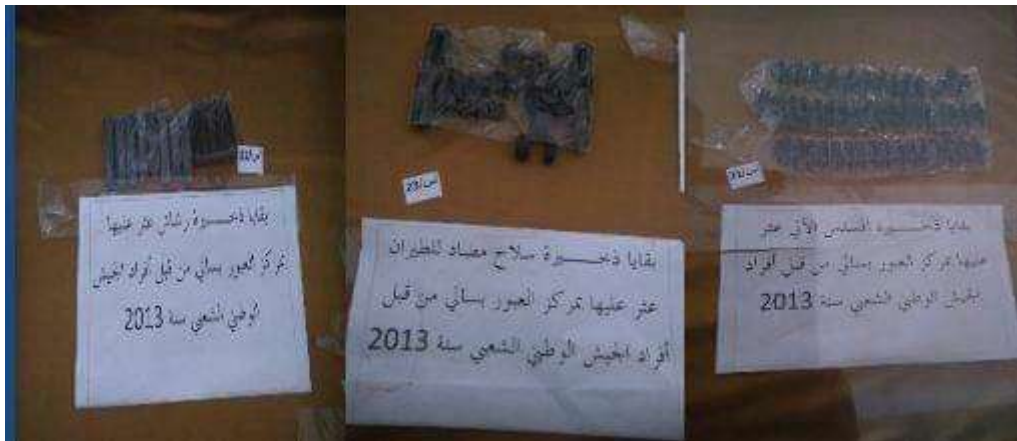 بقايا ذخـــيرة رشاش عثر عليها
بمركز العبور بسالي من قبل أفراد الجيش
الوطني الشعبي سنة 2013
بقايا ذخـــيرة سلاح مضاد للطيران
عثر عليها بمركز العبور بسالي من قبل
أفراد الجيش الوطني الشعبي سنة 2013
بقايا ذخـــيرة المسدس الآلي عثر
عليها بمركز العبور بسالي من قبل أفراد
الجيش الوطني الشعبي سنة 2013